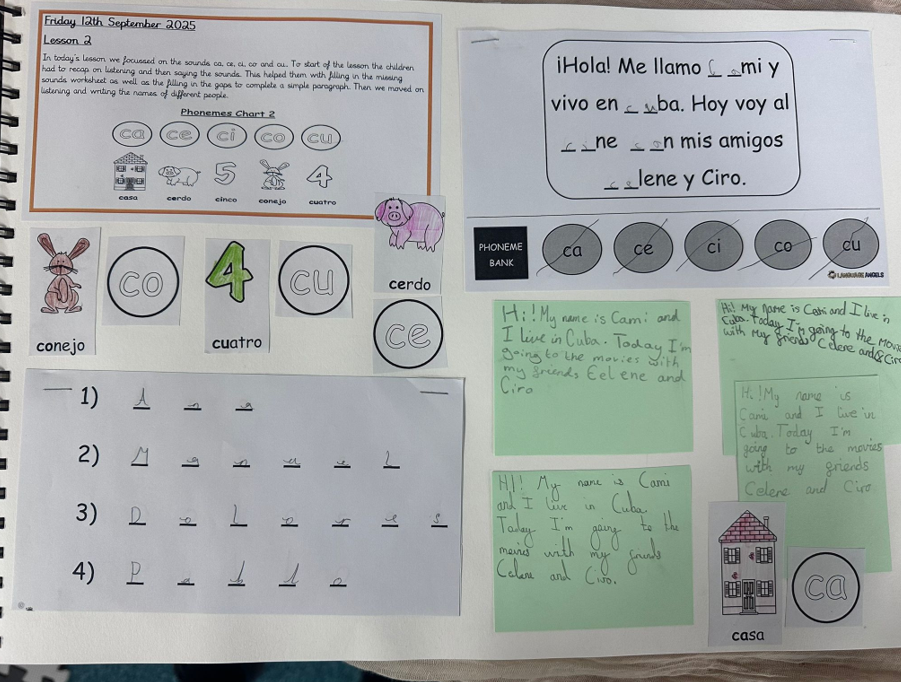 Friday 12th September 2025
Lesson 2
In today's lesson we focussed on the sounds ca, ce, ci, co and cu. To start of the lesson the children
had to recap on listening and then saying the sounds. This helped them with filling in the missing
sounds worksheet as well as the filling in the gaps to complete a simple paragraph. Then we moved on
listening and writing the names of different people.
Phonemes Chart 2
ca ce ci co cu
5 4
casa cerdo cinco conejo cuatro
conejo
co
4
cuatro
cu
cerdo
ce
¡Hola! Me llamo C a mi y
vivo en c u ba. Hoy voy al
c i ne c o n mis amigos
c e lene y Ciro.
PHONEME
BANK
ca ce ci co cu
LANGUAGE ANGELS
1) A n a
2) M a n u e l
3) D o l o r e s
4) P a b l o
Hi! My name is Cami and
I live in Cuba. Today I'm
going to the movies with
my friends Eelene and
Ciro
Hi! My name is Cami and I live in
Cuba. Today I'm going to the movies
with my friends Celene and Ciro
Hi! My name is
Cami and I live in
Cuba. Today I'm
going to the movies
with my friends
Celene and Ciro
HI! My name is Cami
and I live in Cuba.
Today I'm going to the
movies with my friends
Celene and Ciro.
casa
ca